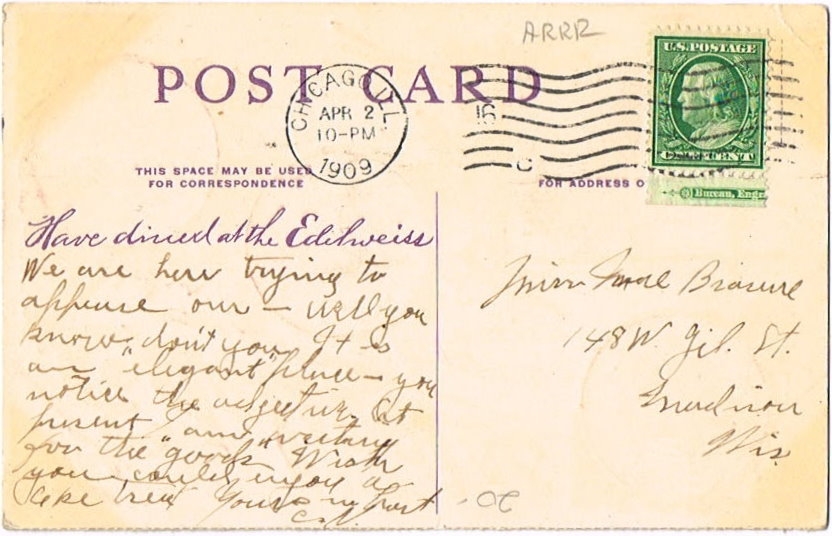 ARRR
POST CARD
CHICAGO, ILL
APR 2
10-PM
1909
15
C
U.S. POSTAGE
ONE CENT
Bureau, Engr
THIS SPACE MAY BE USED
FOR CORRESPONDENCE
FOR ADDRESS O
Have dined at the Edelweiss
We are here trying to
appease our – well you
know, don't you. It is
an "elegant" place – you
notice the adjective. At
present I am waiting
for the "goods" Wish
you could enjoy a
like treat Yours in part
Miss
148 W. Gil. St.
Madison
Wis.